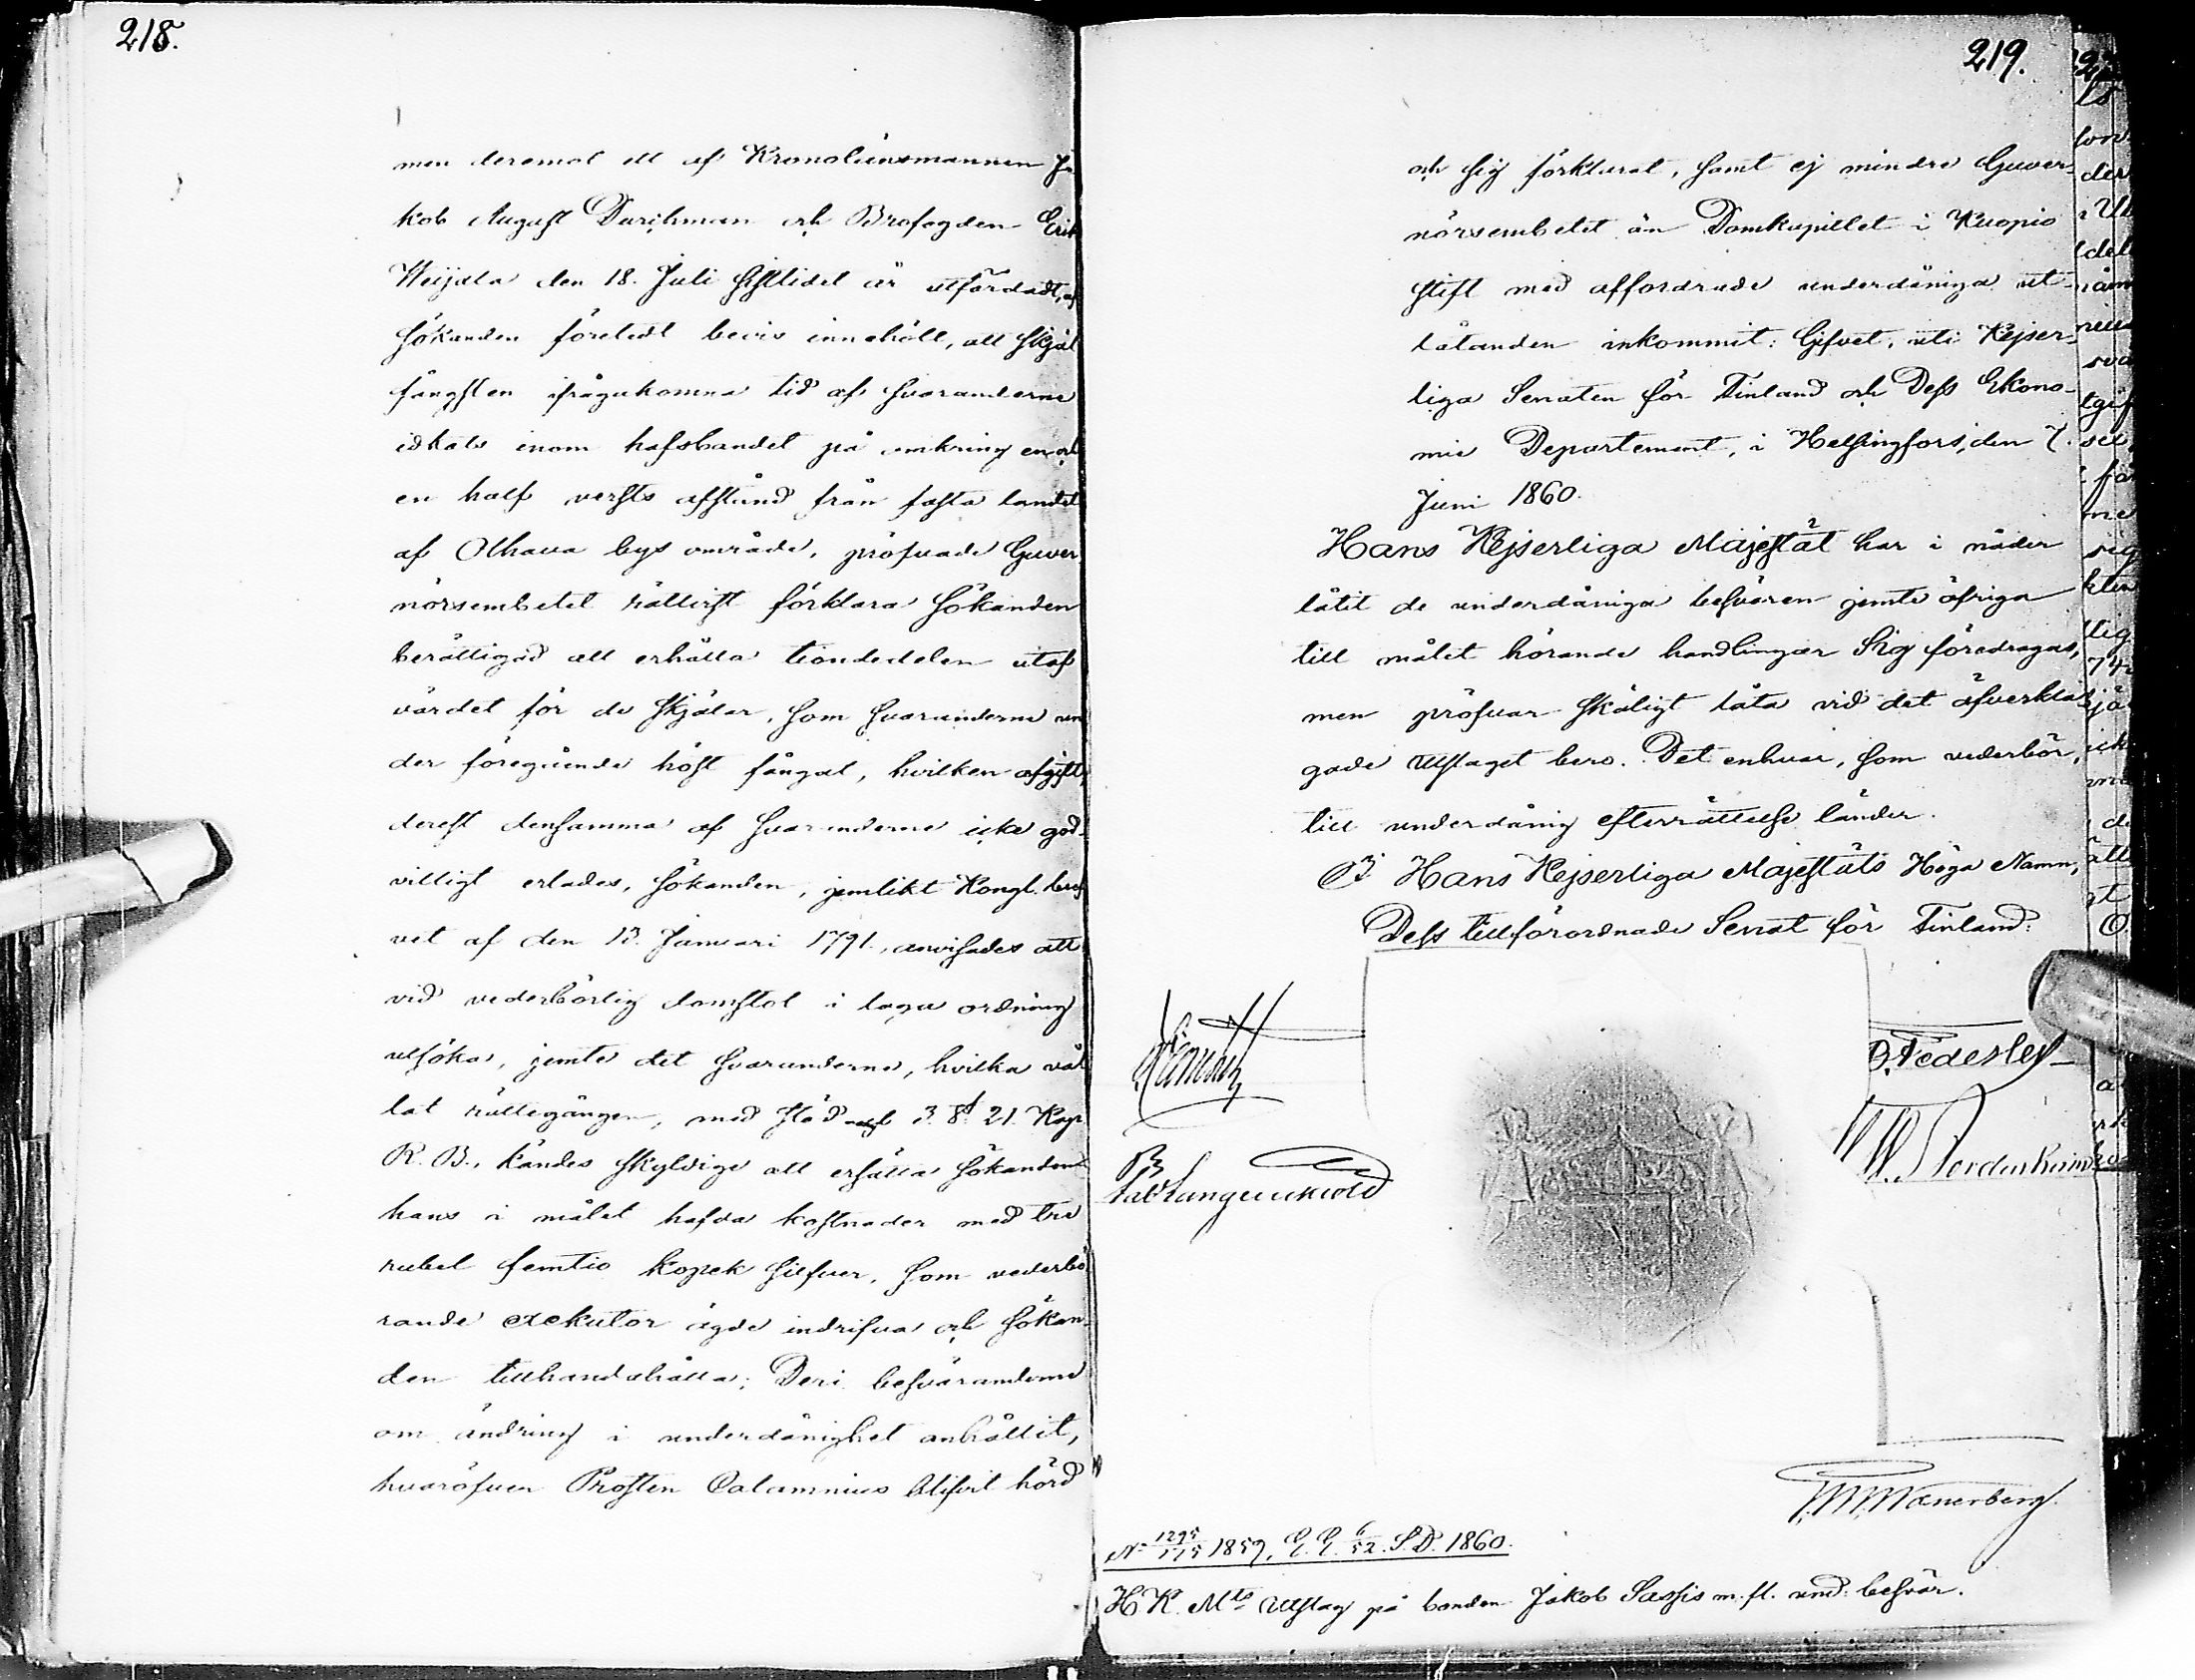 218.
men deremot ett af Kronolänsmannen Ja
kob August Durchman och Brofogden Erik
Weijola den 18. Juli sistlidet år utfärdadt, af
sökanden företedt bevis innehöll, att skjäl
fångsten ifrågakomna tid af svaranderne
idkats inom hafsbandet på omkring en och
en half versts afstånd från fasta landet
af Olhava bys område, pröfvade Guver
nörsembetet rättvist förklara sökanden
berättigad att erhålla tiondedelen utaf
värdet för de skjälar, som svaranderne un
der föregående höst fångat, hvilken afgift,
derest densamma af svaranderne icke god-
villigt erlades, sökanden, jemlikt Kongl. bref
vet af den 13. Januari 1791, anvisades att
vid vederbörlig domstol i laga ordning
utsöka, jemte det svaranderne, hvilka vål
lat rättegången, med stöd af 3. § 21. Kap
R. B., kändes skyldige att ersätta sökanden
hans i målet hafda kostnader med tre
rubel femtio kopek silfver, som vederbö
rande exekutor ägde indrifva och sökan-
den tillhandahålla; Deri besväranderne
om ändring i underdånighet anhållit,
hvaröfver Prosten Calamnius blifvit hörd
219.
och sig förklarat, samt ej mindre Guver-
nörsembetet än Domkapitlet i Kuopio
stift med affordrade underdåniga ut-
låtanden inkommit: Gifvet, uti Kejser-
liga Senaten för Finland och Dess Ekono-
mie Departement, i Helsingfors, den 7.
Juni 1860.
Hans Kejserliga Majestät har i nåder
låtit de underdåniga besvären jemte öfriga
till målet hörande handlingar Sig föredragas,
men pröfvar skäligt låta vid det öfverkla
gade utslaget bero. Det enhvar, som vederbör,
till underdånig efterrättelse länder.
I Hans Kejserliga Majestäts Höga Namn,
Dess tillförordnade Senat för Finland:
O. Federley
Fab. Langenskiöld
W. Nordenheim
Wænerberg.
No 1295/175 1859, E. E. 6/52. S. D. 1860.
H. K. Mts Utslag på bonden Jakob Sassis m. fl. und: besvär.